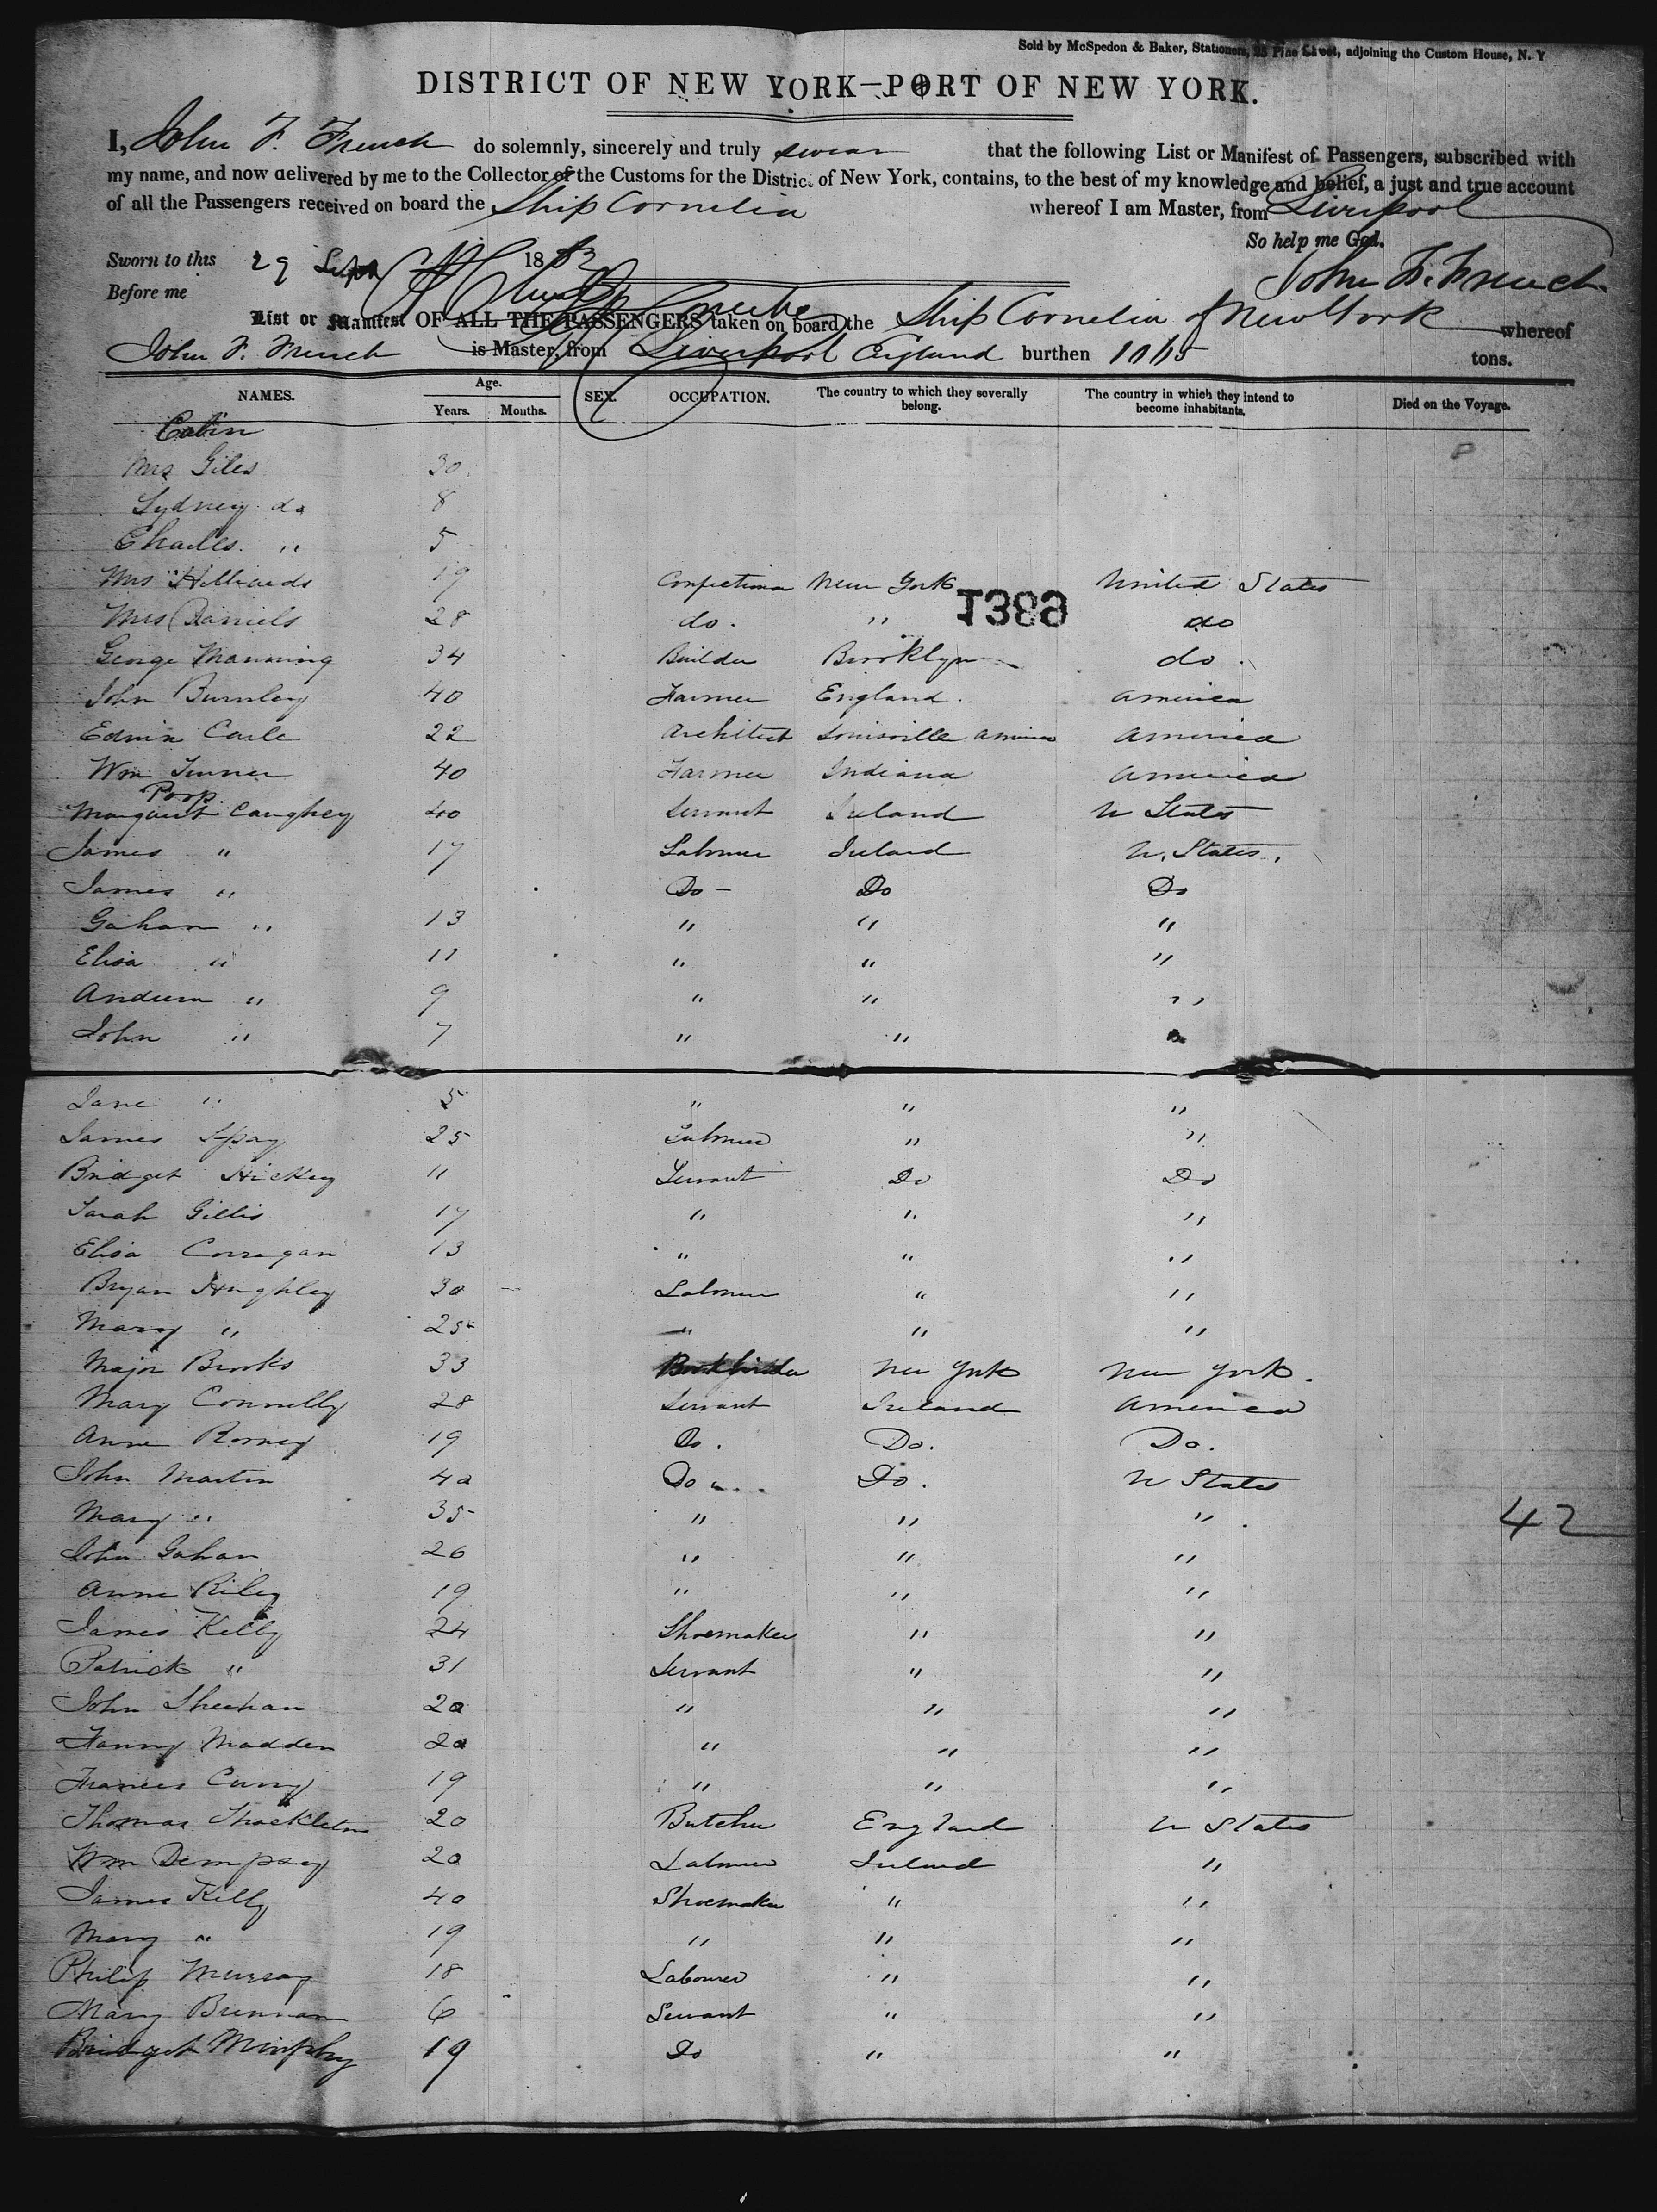 Sold by McSpedon & Baker, Stationers, 25 Pine Street, adjoining the Custom House, N. Y
DISTRICT OF NEW YORK—PORT OF NEW YORK.
I, John F. French do solemnly, sincerely and truly swear that the following List or Manifest of Passengers, subscribed with
my name, and now delivered by me to the Collector of the Customs for the District of New York, contains, to the best of my knowledge and belief, a just and true account
of all the Passengers received on board the Ship Cornelia whereof I am Master, from Liverpool
So help me God.
Sworn to this 29 Sept 1852 John F. French
Before me
List or Manifest OF ALL THE PASSENGERS taken on board the Ship Cornelia of New York whereof
John F. French is Master, from Liverpool England burthen 1065 tons.
NAMES. Age. Years. Months. SEX. OCCUPATION. The country to which they severally belong. The country in which they intend to become inhabitants. Died on the Voyage.
Cabin
Mrs Giles 30
Sydney do 8
Charles " 5
Mrs Hilliards 19 New York United States
1389
Mrs Daniels 28 do. " do
George Manning 34 Builder Brooklyn do.
John Burnley 40 Farmer England. America
Edwin Earle 22 Architect Louisville America America
Wm Turner 40 Farmer Indiana America
Poop
Margaret Caughey 40 Servant Ireland U States
James " 17 Labourer Ireland U. States.
James " Do - Do Do
Gahan " 13 " " "
Elisa " 11 " " "
Andrew " 9 " " "
John " 7 " "
Jane " 5 " " "
James 25 Labourer " "
Bridget Hickey 11 Servant Do Do
Sarah Gillis 17 " " "
Elisa Corregan 13 " " "
Bryan Hughley 30 Labourer " "
Mary " 25 " " "
Major Brooks 33 Bookbinder New York New York.
Mary Connelly 28 Servant Ireland America
Anne Rorney 19 Do. Do. Do.
John Martin 40 Do Do. U States
Mary " 35 " " "
42
John Gahan 26 " " "
Anne Riley 19 " " "
James Kelly 24 Shoemaker " "
Patrick " 31 Servant " "
John Sheehan 20 " " "
Fanny Madden 20 " " "
Frances Curry 19 " " "
Thomas Shackleton 20 Butcher England U States
Wm Dempsey 20 Labourer Ireland "
James Kelly 40 Shoemaker " "
Mary " 19 " " "
Philip Murray 18 Labourer " "
Mary Brennan 6 Servant " "
Bridget Murphy 19 Do " "